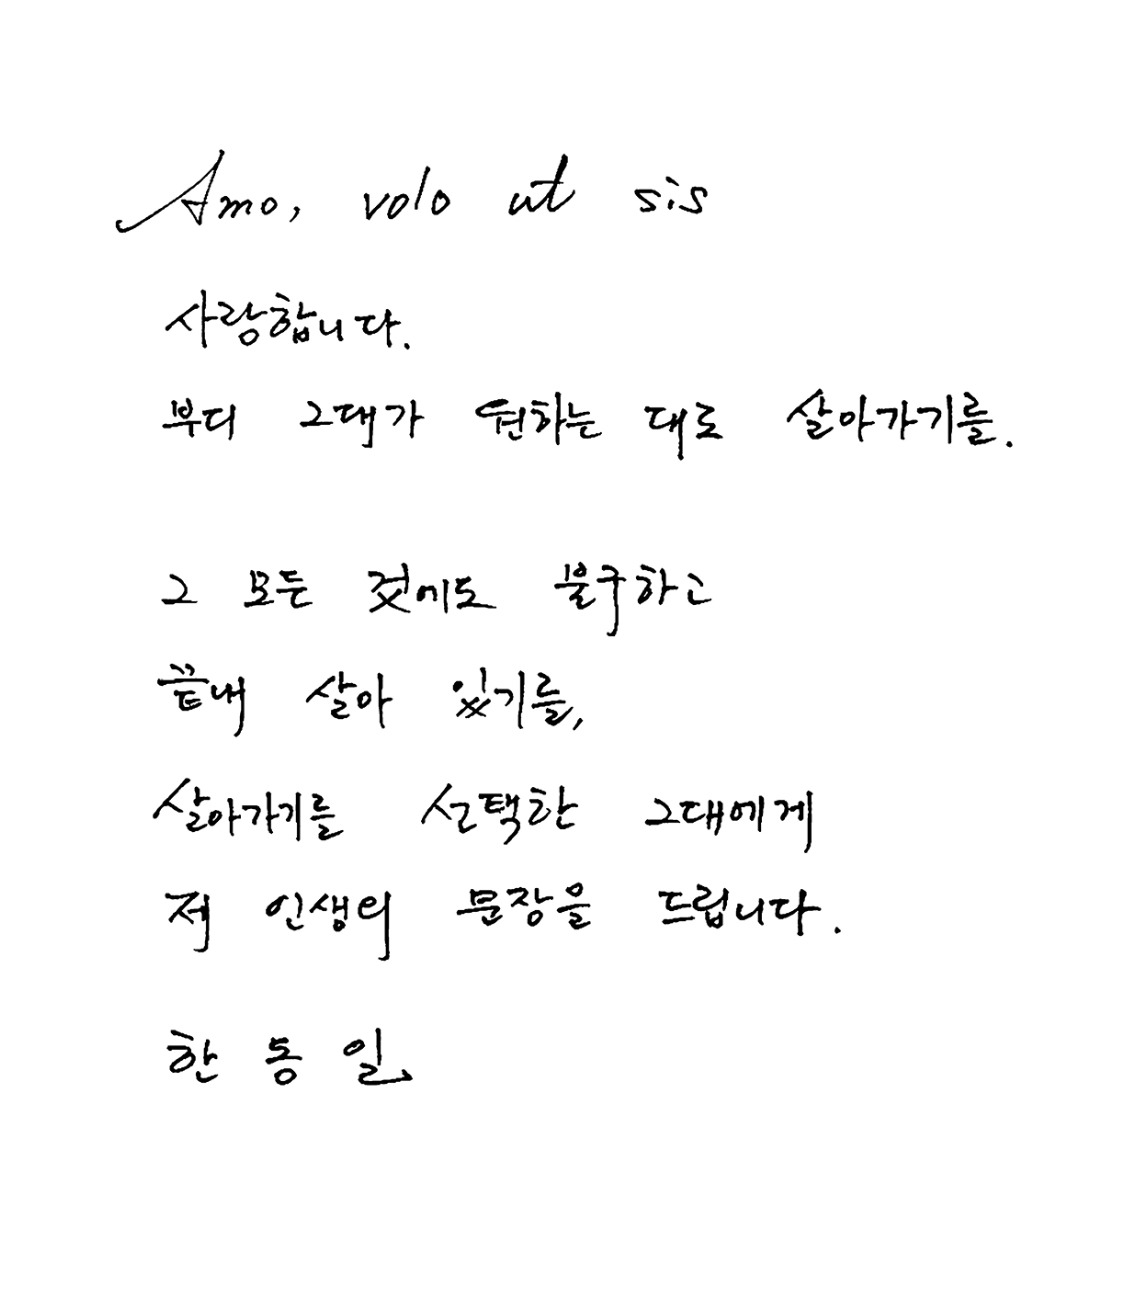 Amo, volo ut sis
사랑합니다.
부디 그대가 원하는 대로 살아가기를.
그 모든 것에도 불구하고
끝내 살아 있기를,
살아가기를 선택한 그대에게
제 인생의 문장을 드립니다.
한동일